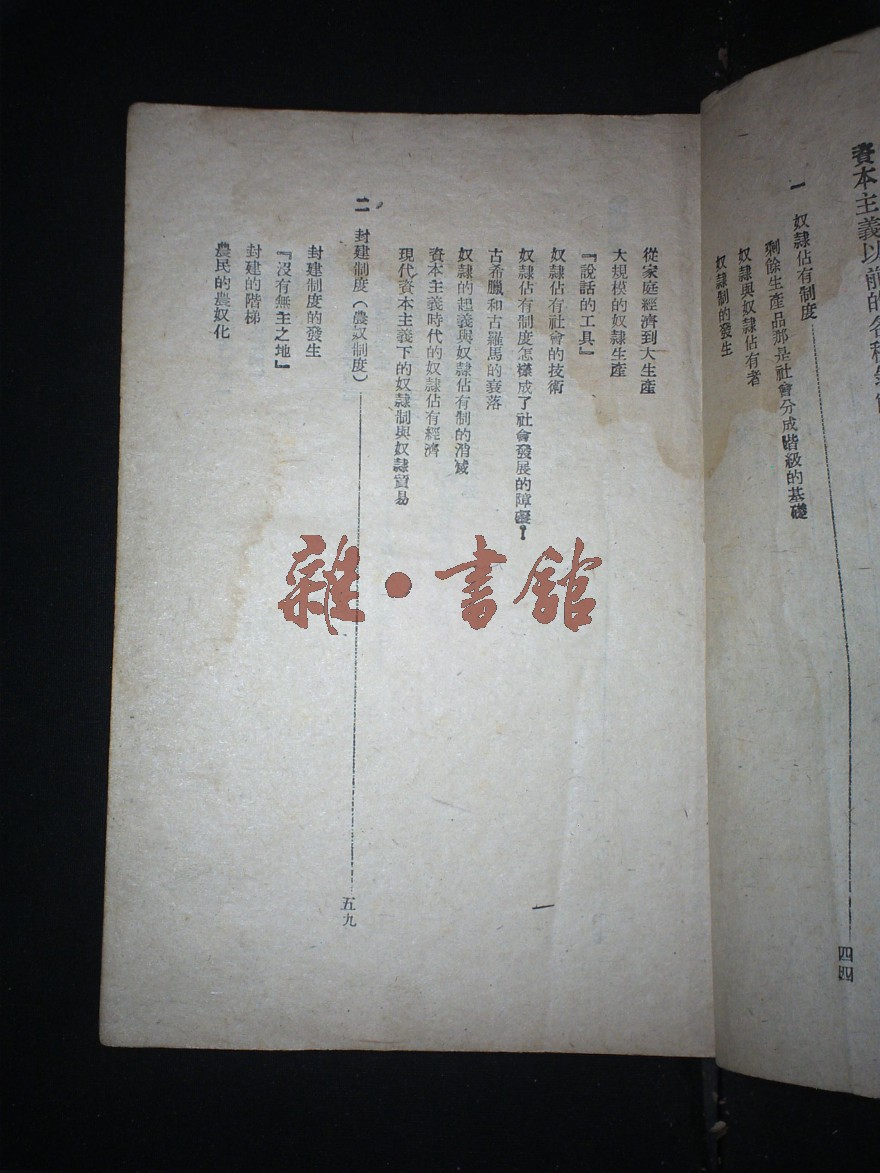 資本主義以前的各種
一 奴隸佔有制度 四四
剩餘生產品那是社會分成階級的基礎
奴隸與奴隸佔有者
奴隸制的發生
從家庭經濟到大生產
大規模的奴隸生產
『說話的工具』
奴隸佔有社會的技術
奴隸佔有制度怎樣成了社會發展的障礙？
古希臘和古羅馬的衰落
奴隸的起義與奴隸佔有制的消滅
資本主義時代的奴隸佔有經濟
現代資本主義下的奴隸制與奴隸貿易
二 封建制度（農奴制度） 五九
封建制度的發生
『沒有無主之地』
封建的階梯
農民的農奴化
一
雜·書館